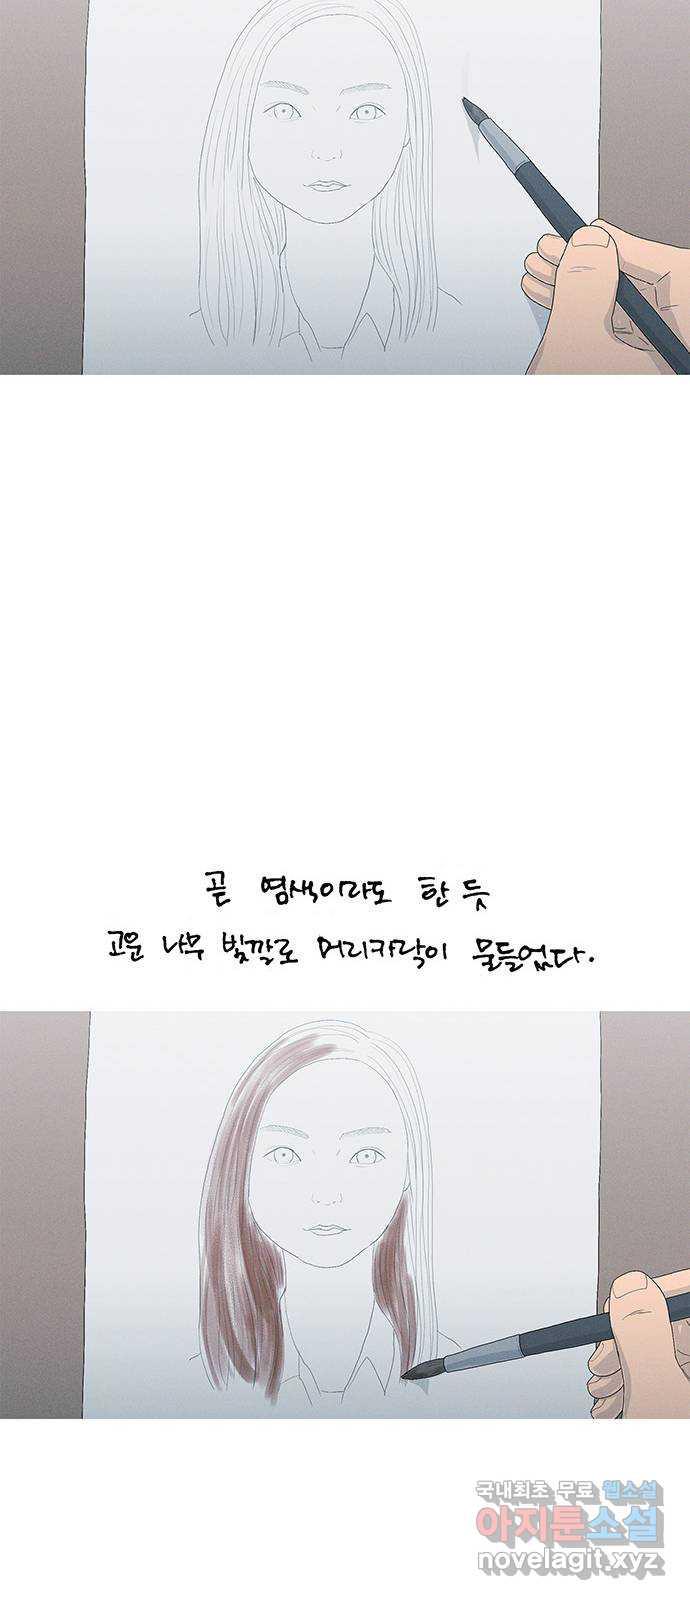 곧 염색이라도 한 듯
고운 나무 빛깔로 머리카락이 물들었다.
국내최초 무료 웹소설
아지툰소설
novelagit.xyz